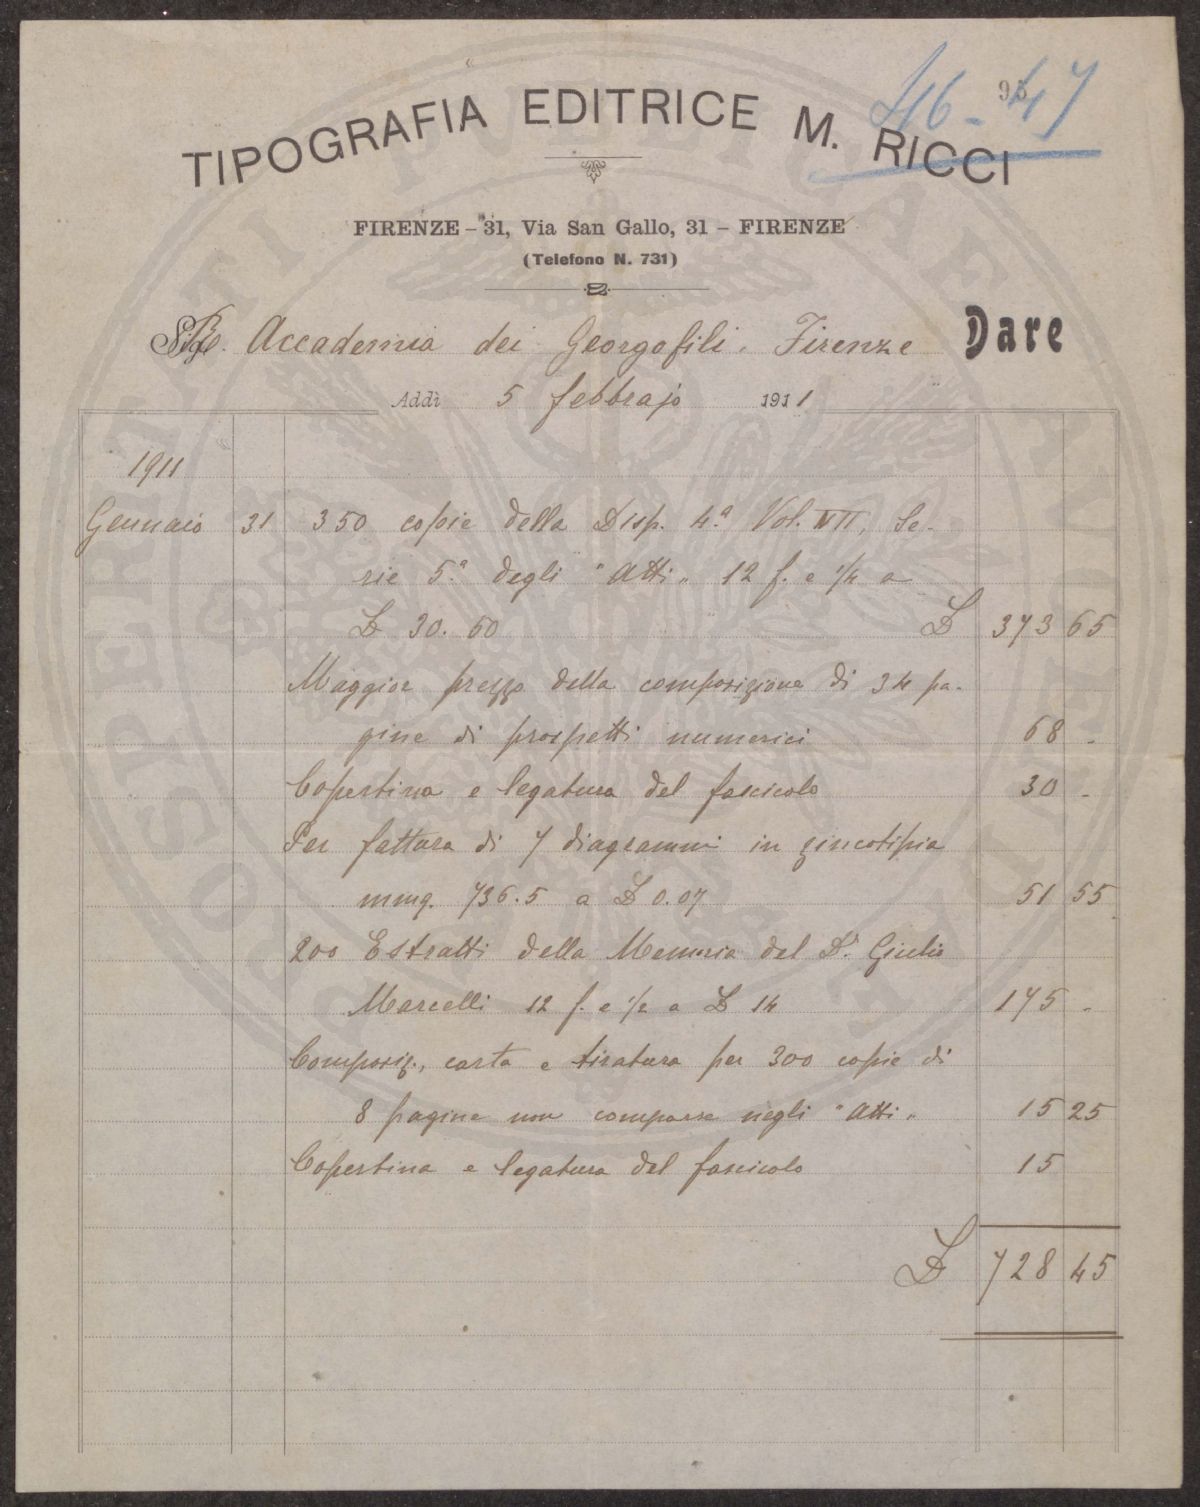 46-47
TIPOGRAFIA EDITRICE M. RICCI
FIRENZE – 31, Via San Gallo, 31 – FIRENZE
(Telefono N. 731)
R. Accademia dei Georgofili. Firenze Dare
Addì 5 febbrajo 1911
1911
Gennaio 31 350 copie della Disp. 4.ª Vol. VII, Se-
rie 5.ª degli "Atti" 12 f. e 1/4 a
L 30.60 L 373 65
Maggior prezzo della composizione di 34 pa-
gine di prospetti numerici 68 -
Copertina e legatura del fascicolo 30 -
Per fattura di 7 diagrammi in zincotipia
mmq. 736.5 a L 0.07 51 55
200 Estratti della Memoria del Dr. Giulio
Marcelli 12 f. e 1/2 a L 14 175 -
Composiz., carta e tiratura per 300 copie di
8 pagine non comparse negli "Atti" 15 25
Copertina e legatura del fascicolo 15
L 728 45